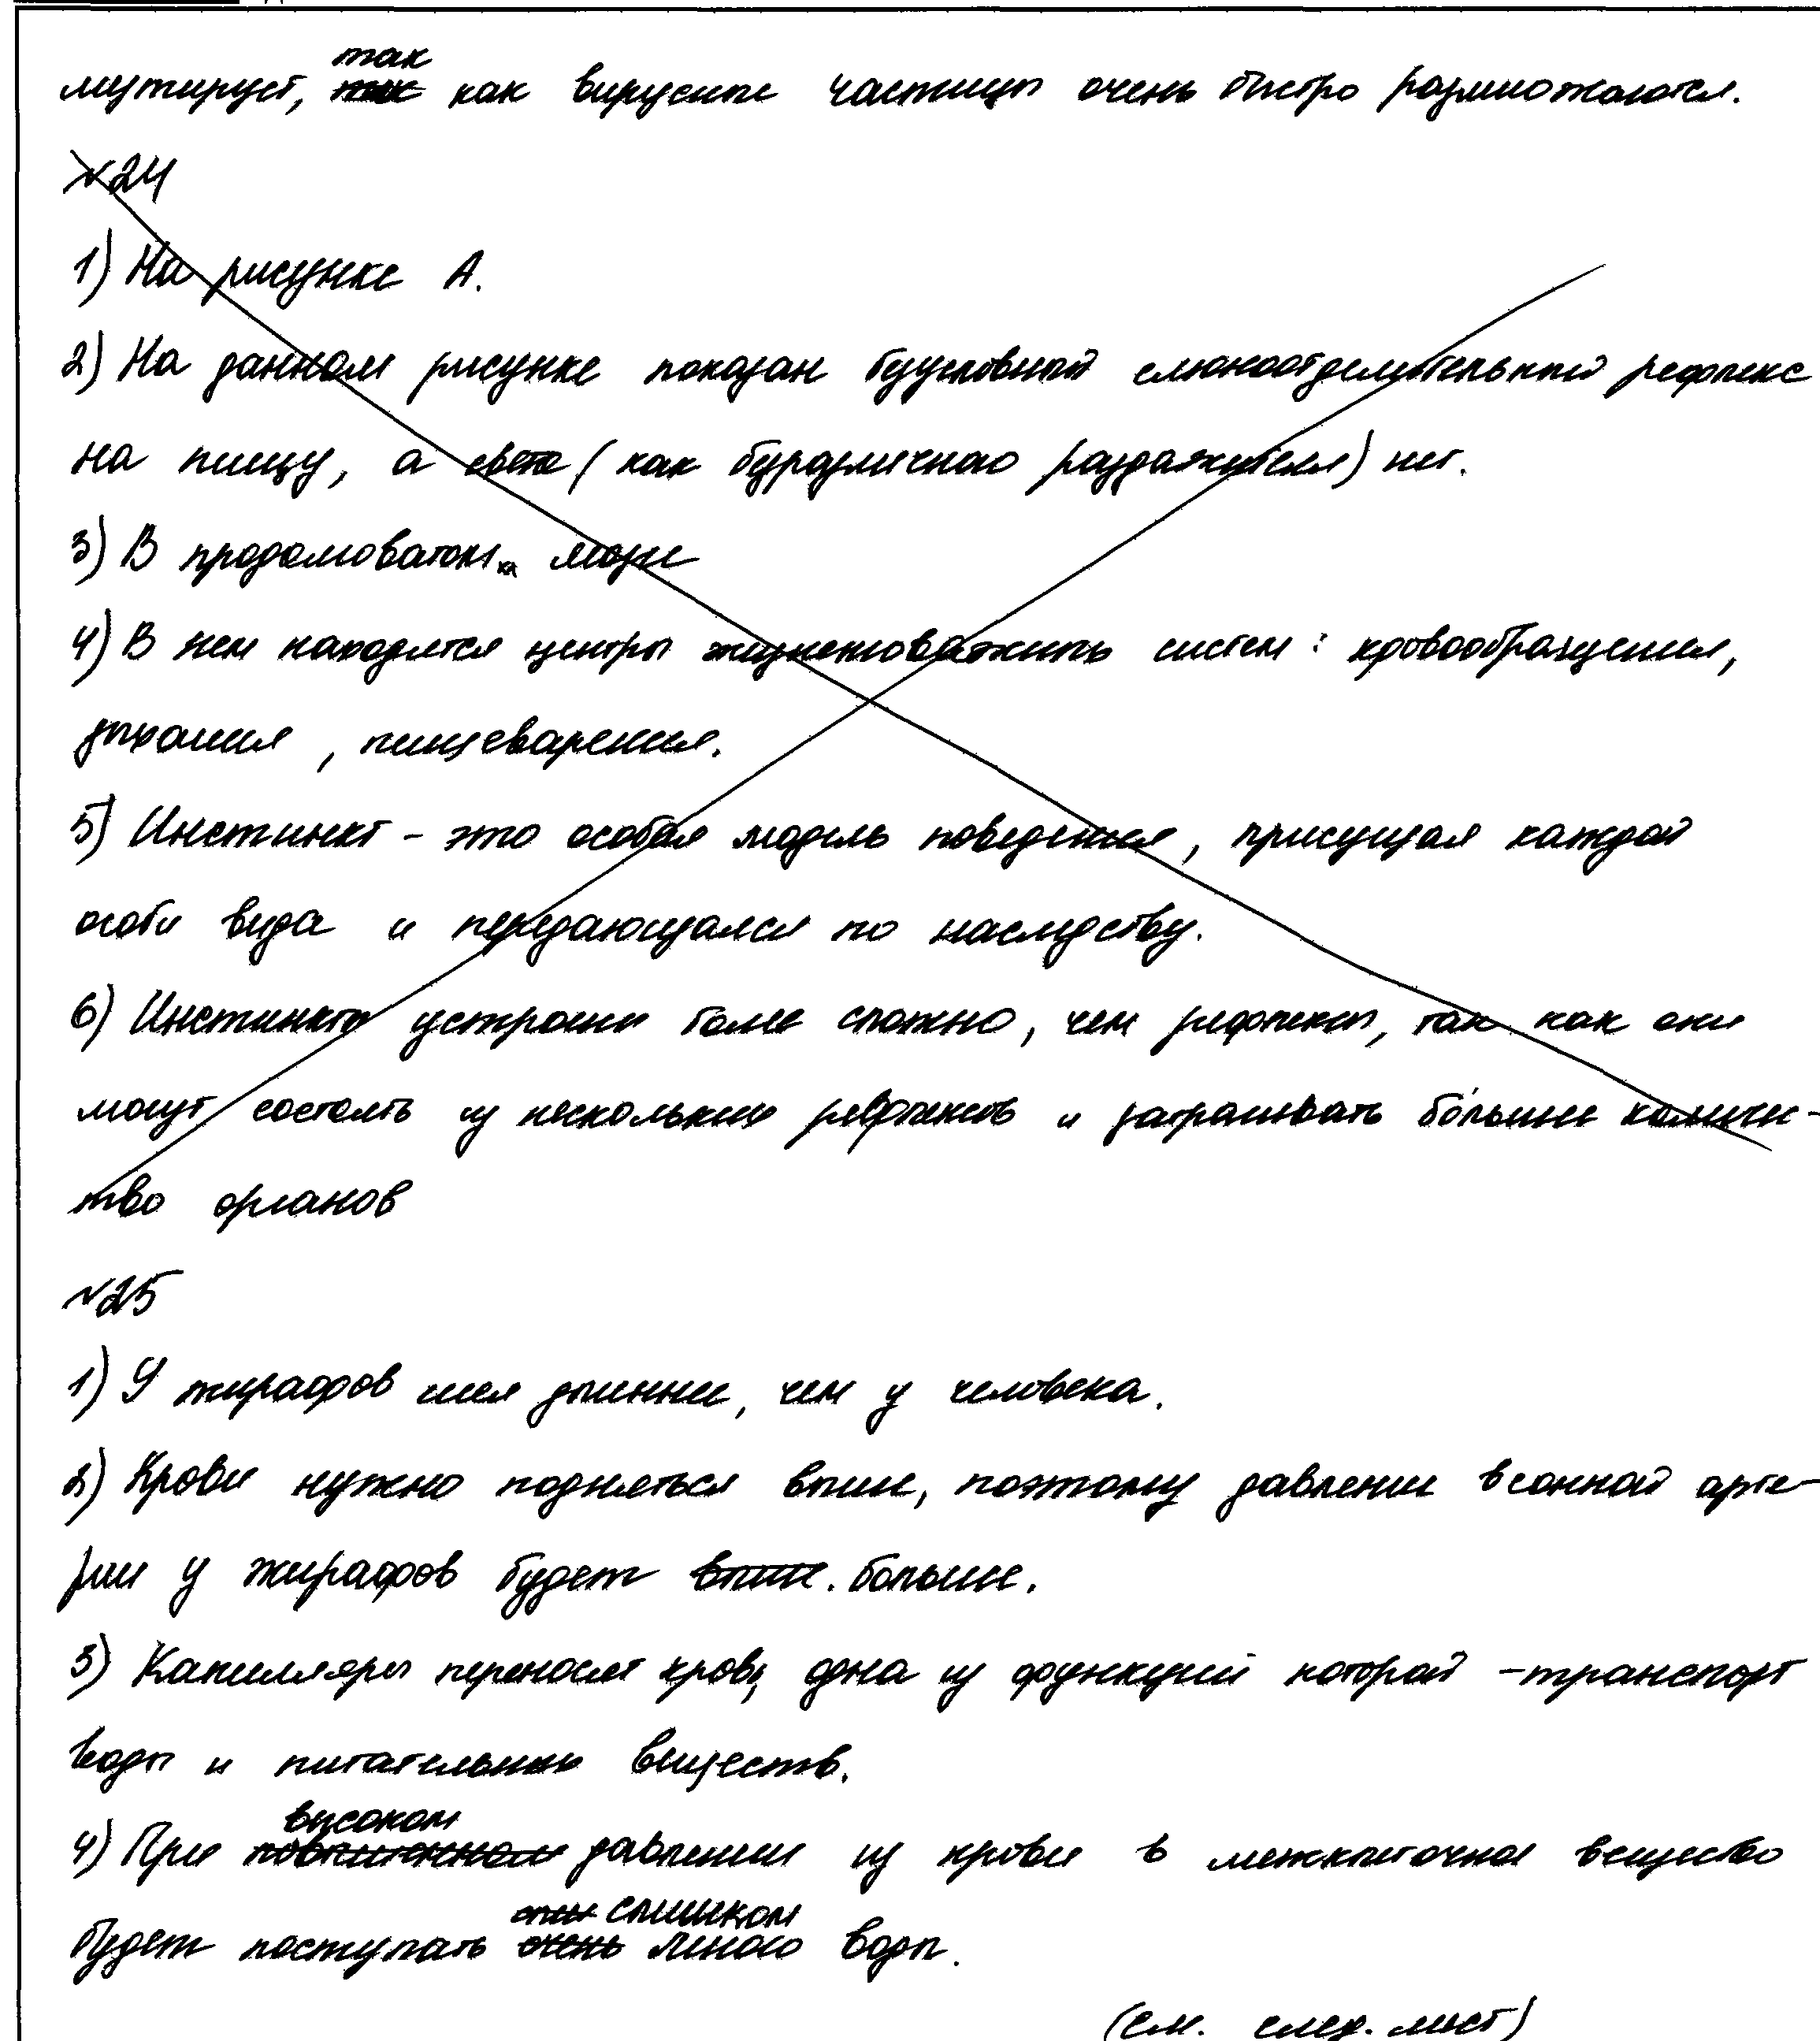 так
мутирует, так как вирусные частицы очень быстро размножаются.
№24
1) На рисунке А.
2) На данном рисунке показан безусловный слюноотделительный рефлекс
на пищу, а света (как безразличного раздражителя) нет.
3) В продолговатом мозге
4) В нем находятся центры жизненоважных систем: кровообращения,
дыхания, пищеварения.
5) Инстинкт - это особая модель поведения, присущая каждой
особи вида и передающаяся по наследству.
6) Инстинкты устроены более сложно, чем рефлексы, так как они
могут состоять из нескольких рефлексов и затрагивать бóльшее количес-
тво органов
№25
1) У жирафов шея длиннее, чем у человека.
2) Крови нужно подняться выше, поэтому давление в сонной арте-
рии у жирафов будет выше. больше.
3) Капилляры переносят кровь, одна из функций которой - транспорт
воды и питательных веществ.
высоком
4) При повышенном давлении из крови в межклеточное вещество
слишком
будет поступать очень много воды.
(см. след. лист)